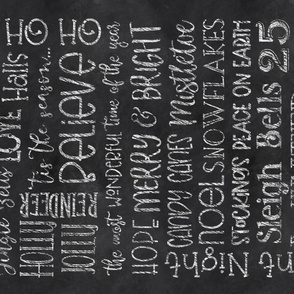 Jingle Bells LOVE Halls HO
HOLLY 'tis the season...
JOLLY REINDEER believe HO
the most WONDERFUL time of the year
HOPE MERRY & BRIGHT
CANDY CANES Mistletoe
NOEL SNOWFLAKES
STOCKINGS PEACE ON EARTH
Night Sleigh Bells 25